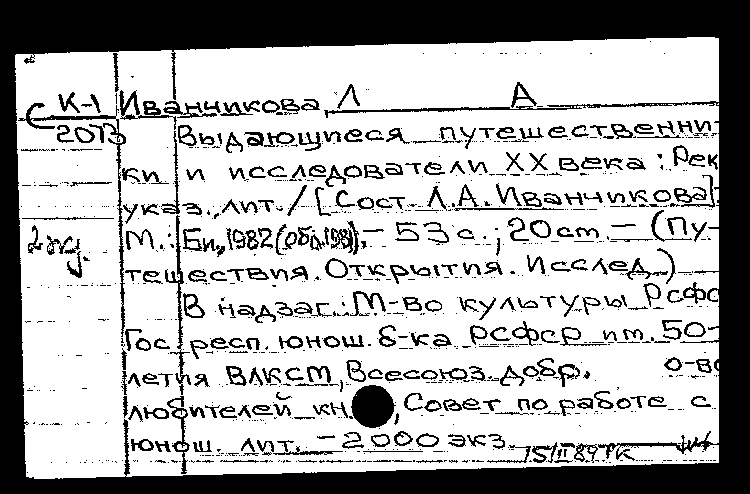 К-1 Иванчикова, Л А
Выдающиеся путешественни-
ки и исследователи XX века : Рек
указ. лит. / [Сост. Л.А. Иванчикова].
2 эку. М.: Б.и., 1982 (обл. 1981). – 53 с.; 20 см. – (Пу-
тешествия. Открытия. Исслед.)
В надзаг.: М-во культуры РСФС
Гос. респ. юнош. б-ка РСФСР им. 50-
летия ВЛКСМ, Всесоюз. добр. о-во
любителей кн., Совет по работе с
юнош. лит. – 2000 экз.